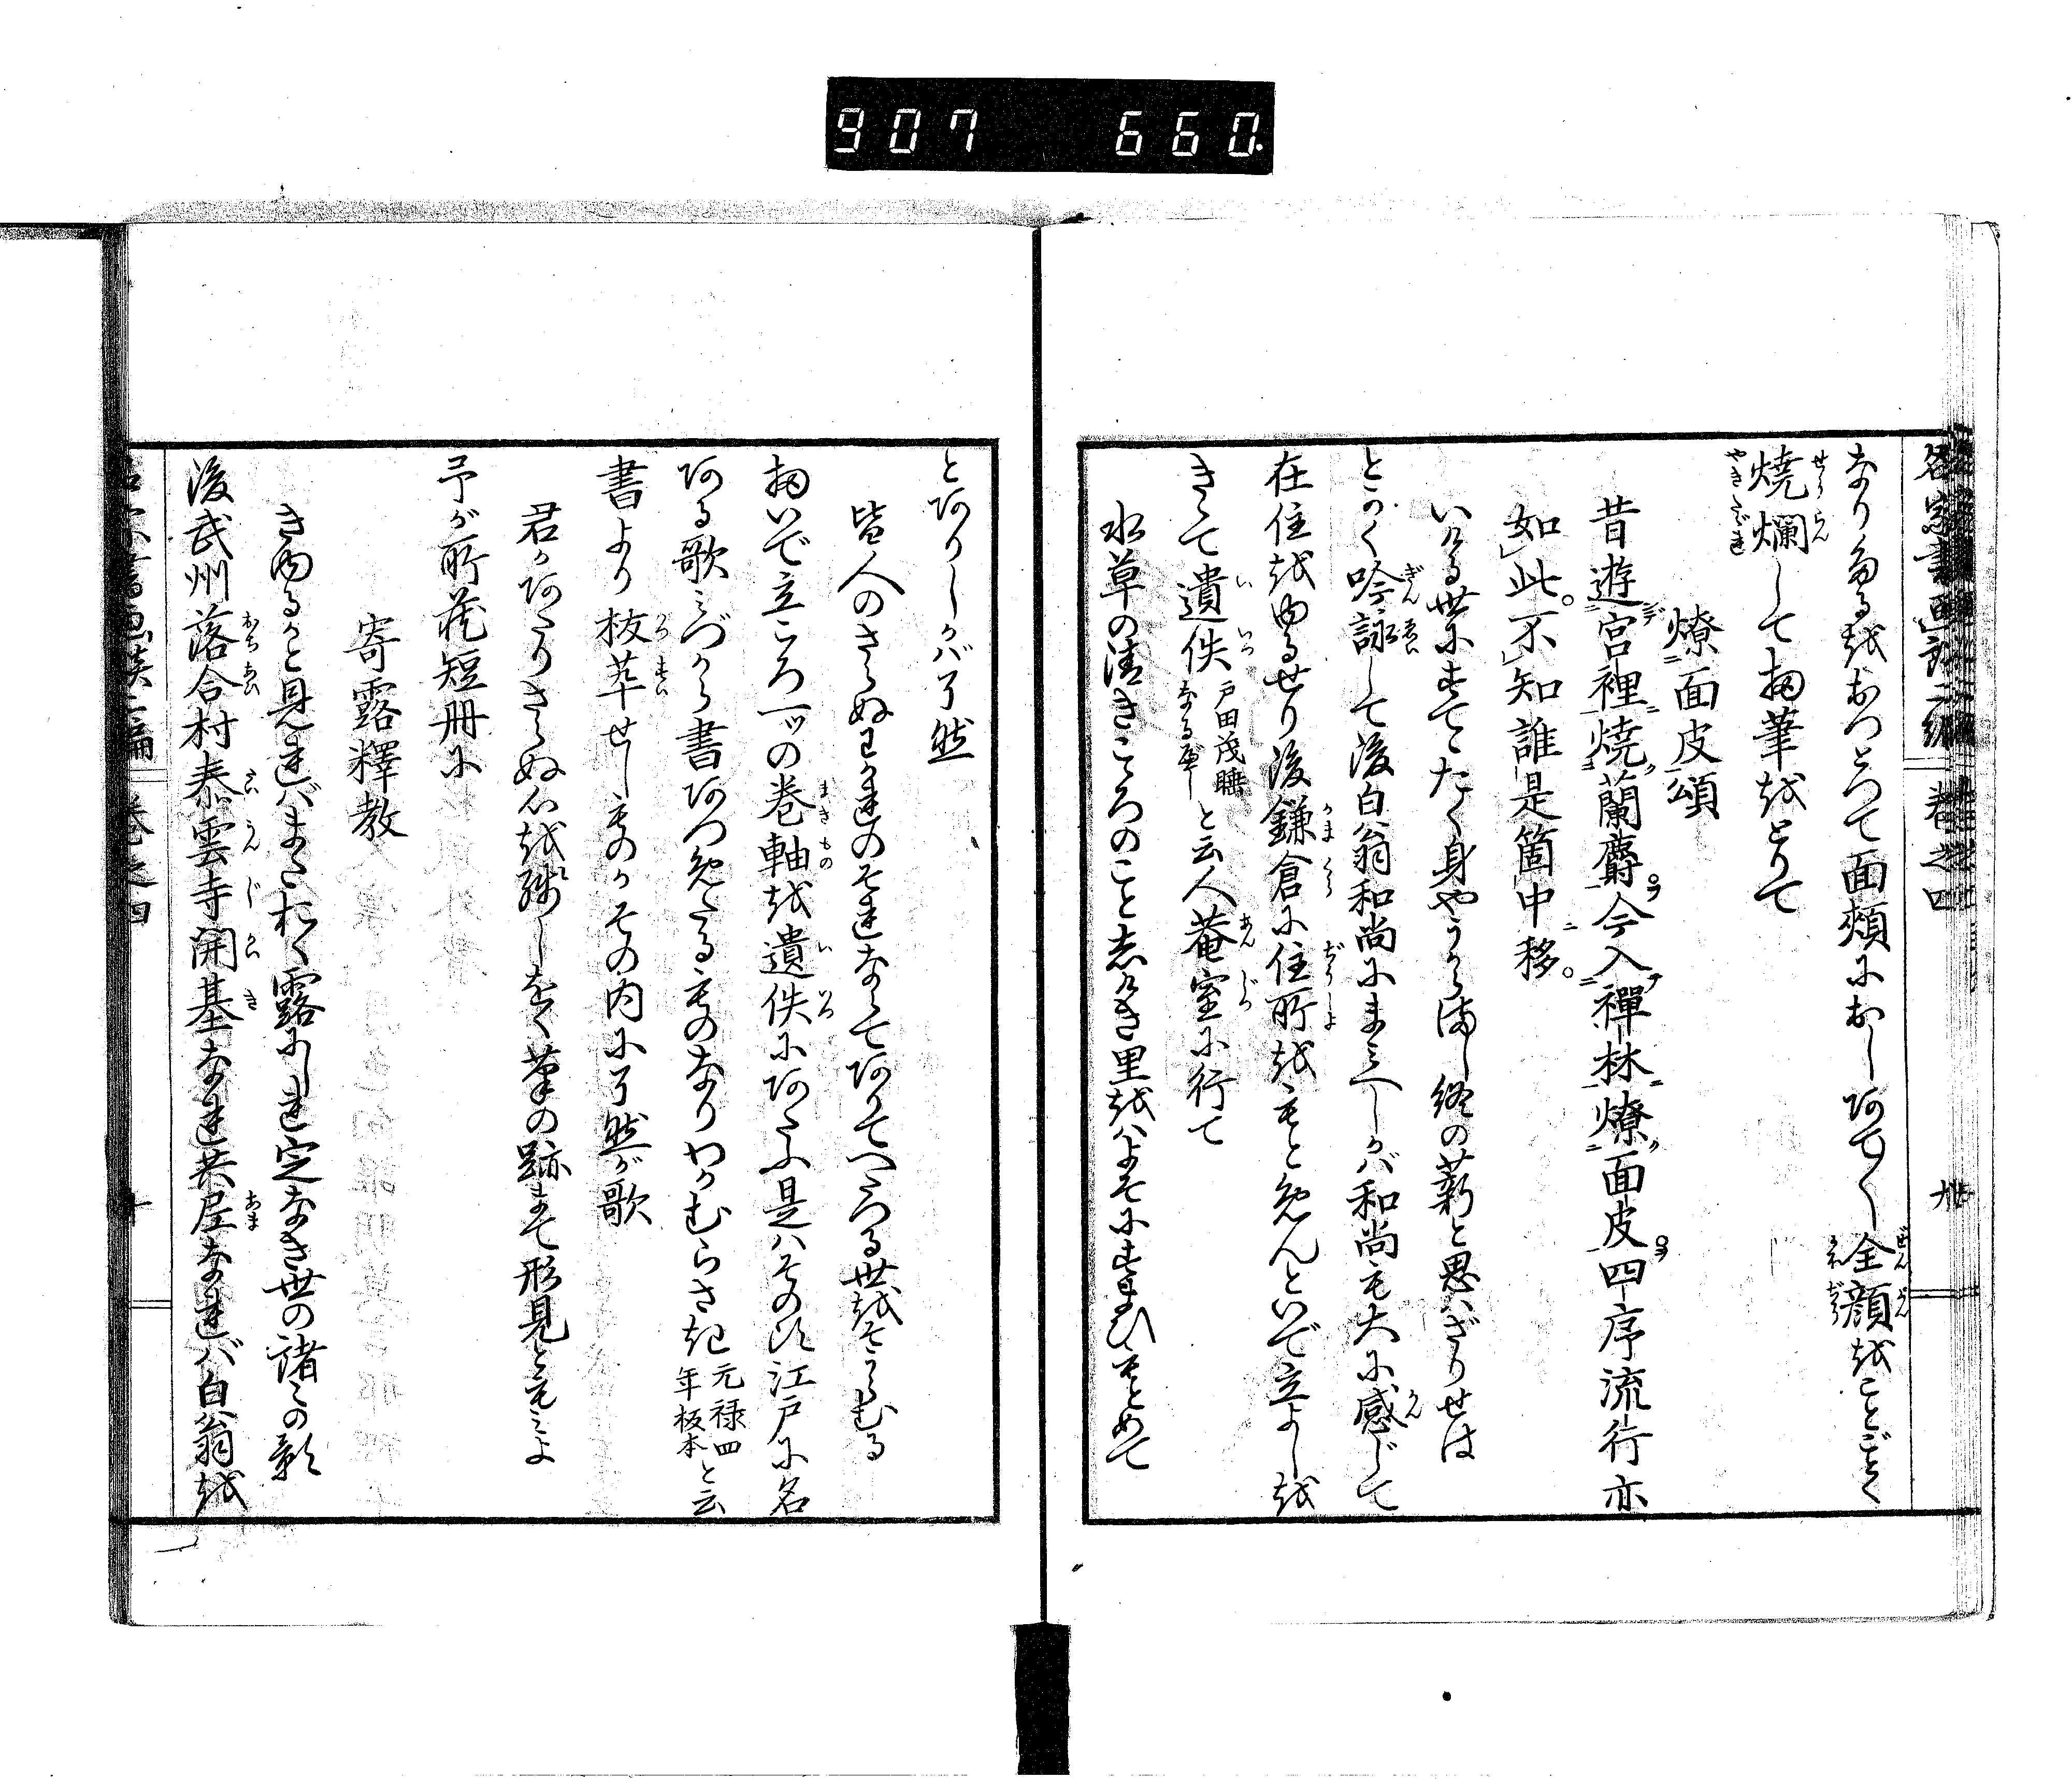 907 660
名家書画談二編 巻之四 九
なりたるをおつとつて面頬におしあてく全顔をことごとく
焼爛して扨筆をとりて
燎面皮頌
昔遊宮裡焼蘭麝今入禪林燎面皮四序流行亦
如此不知誰是箇中移
いける世にすてゝたく身やうからまし終の薪と思はざりせは
とかく吟詠して後白翁和尚にまみへしかば和尚も大に感じて
在住をゆるせり後鎌倉に住所をもとめんといで立よしを
きゝて遺佚戸田茂睡なるべしと云人菴室に行て
水草の清きこゝろのことしけき里をはよそにすまひもとめて
とありしかば了然
皆人のさらぬわかれのそれならてありてへたつる世をそうらむる
扨いで立ころ一ツの巻軸を遺佚にあたふ是はそのかみ江戸に名
ある歌みづから書あつめたるものなりわかむらさき元禄四年板本と云
書より抜萃せしものかその内に了然が歌
君かあたりさらぬ心を残しをく筆の跡まて形見ともみよ
予が所蔵短冊に
寄露釋教
きゆるかと見ればまたおく露にしれ定なき世の諸々の影
後武州落合村泰雲寺開基なれ共尼なればは白翁を